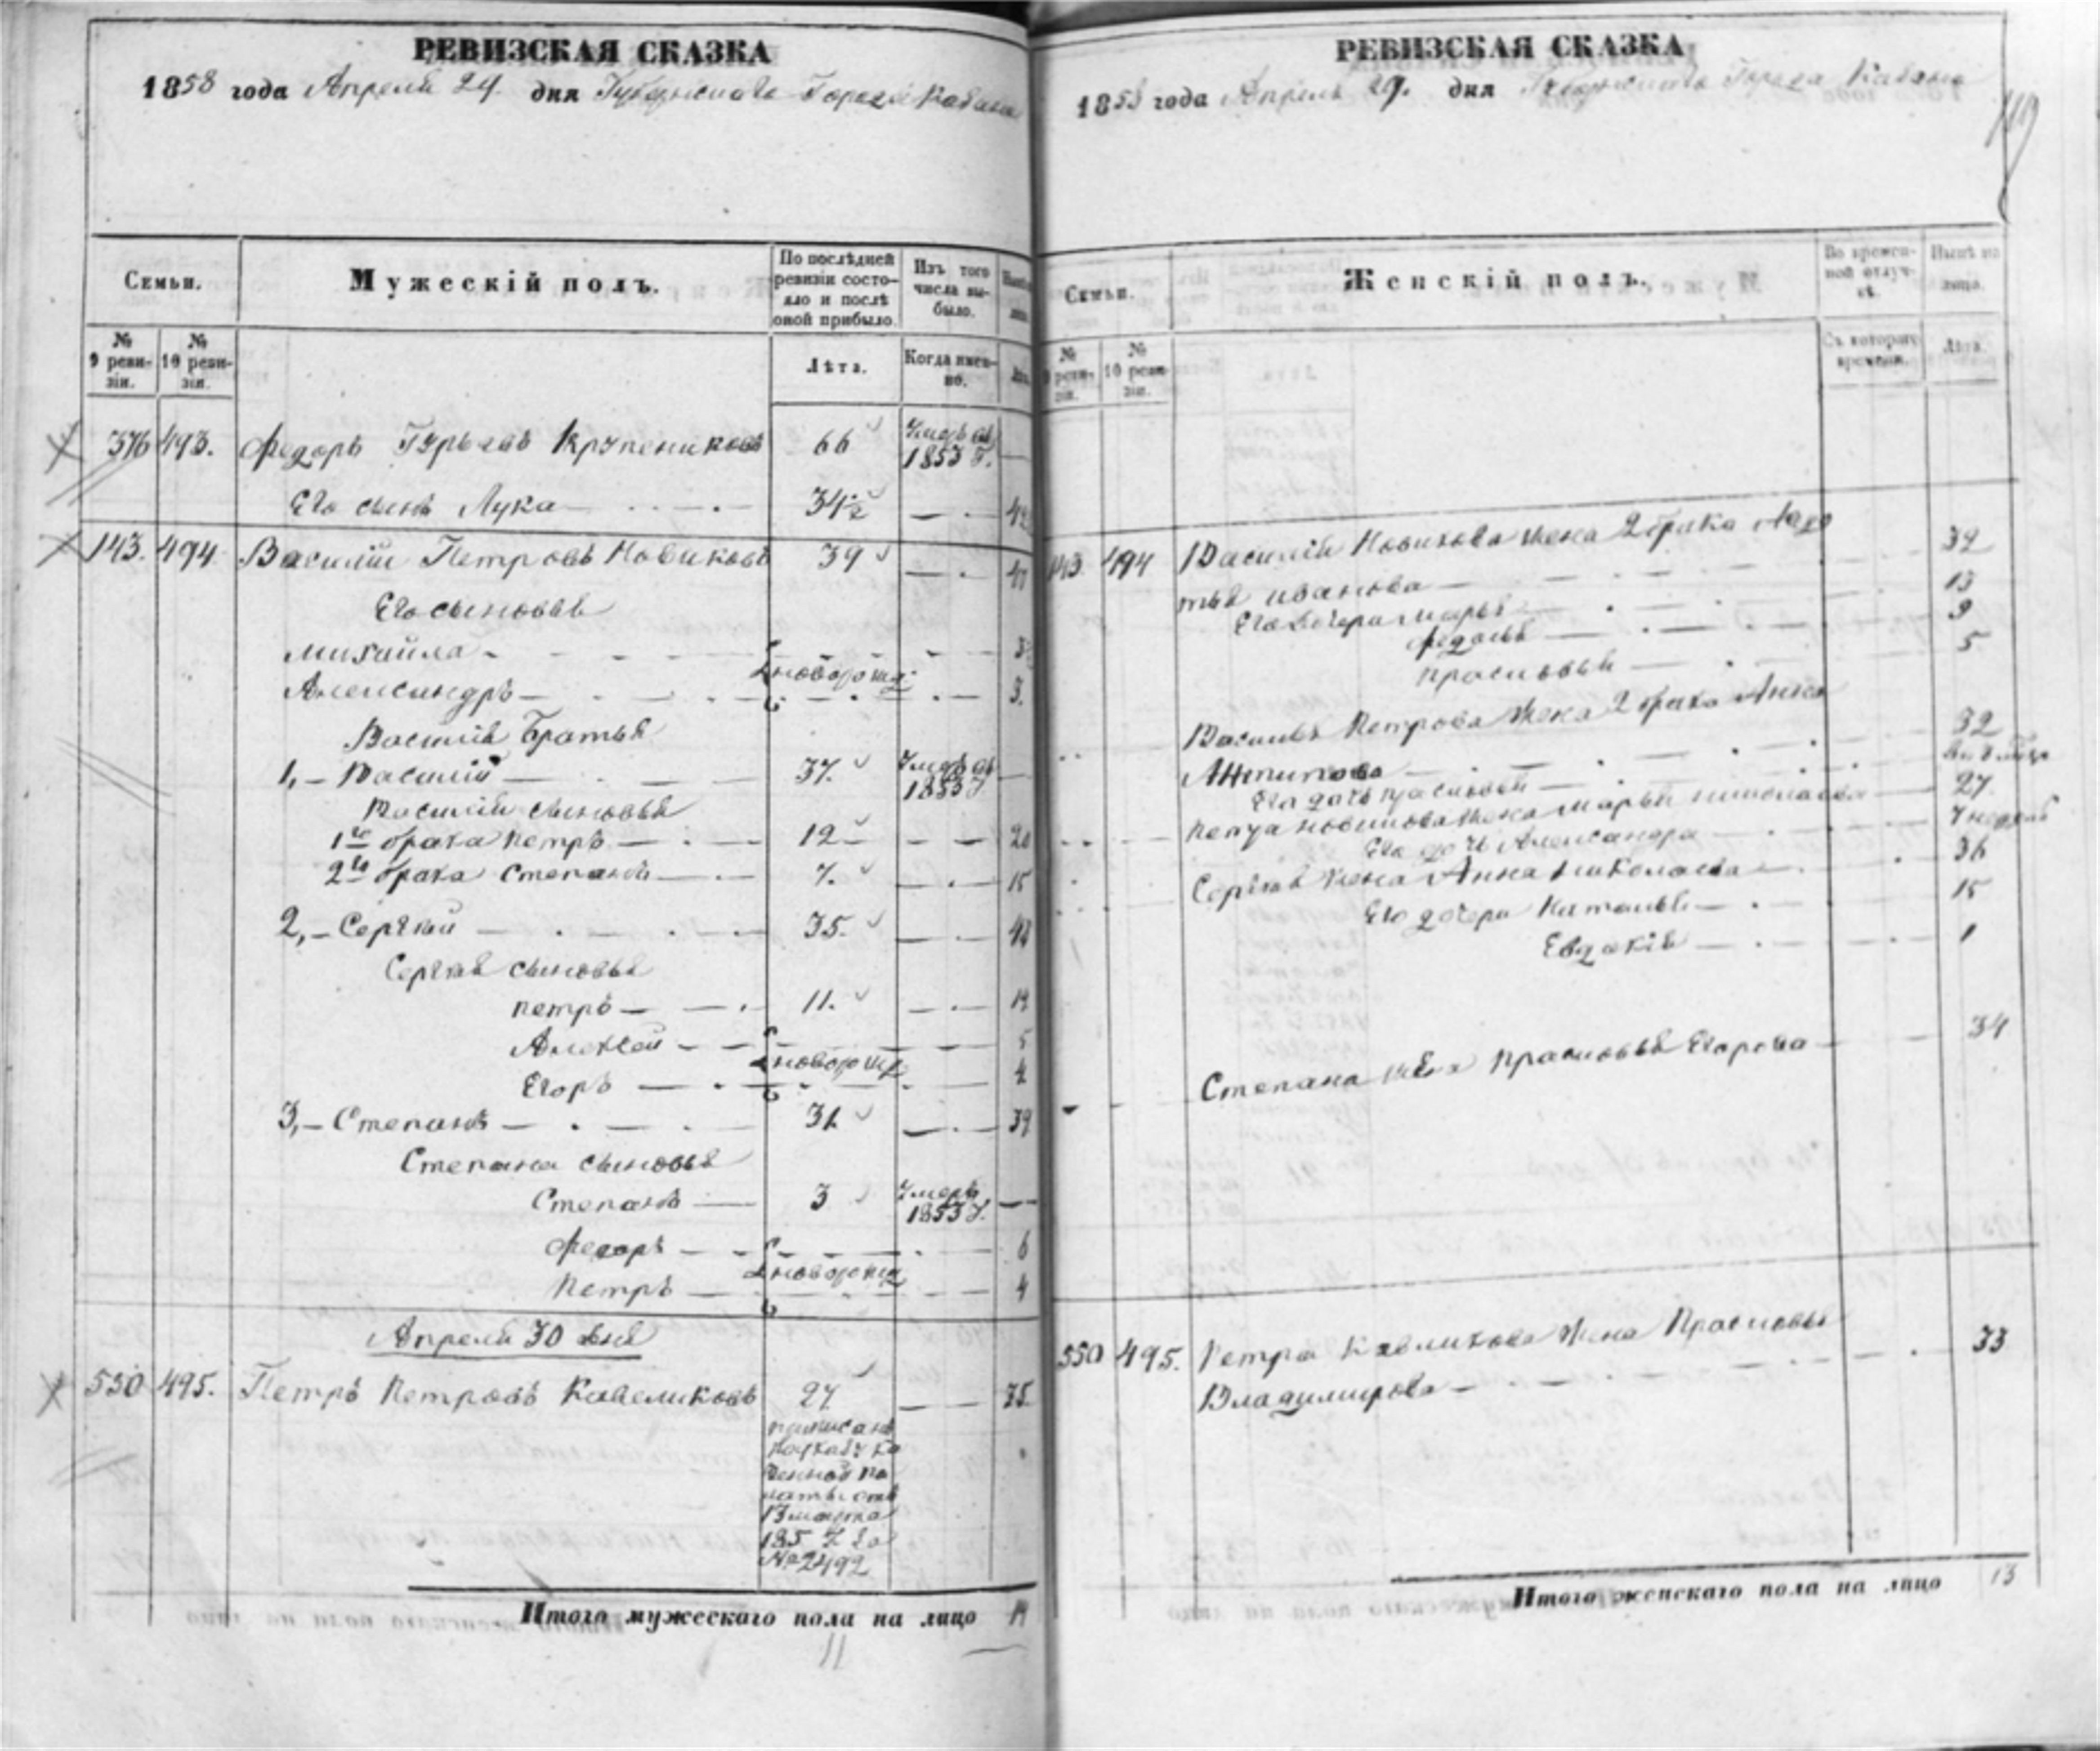 РЕВИЗСКАЯ СКАЗКА
1858 года Апреля 29 дня Губернскаго Города Казани
Семьи.
Мужескій полъ.
По послѣдней ревизіи состояло и послѣ оной прибыло.
Изъ того числа выбыло.
№ 9 ревизіи.
№ 10 ревизіи.
Лѣта.
Когда именно.
376 493. Федоръ Гурьевъ Крупениковъ 66 Умеръ въ 1853 г. —
Его сынъ Лука — 34½ — 42
143. 494 Василій Петровъ Новиковъ 39 — 47
Его сыновья
Михайла — новорожд.
Александръ — 3.
Василія Братья
1, — Василій — 37. Умеръ въ 1853 г. —
Василія сыновья
1го брака Петръ — 12 — 20
2го брака Степанъ — 7. — 15
2, — Сергѣй — 35. — 43
Сергѣя сыновья
Петръ — 11. — 19
Алексѣй — новорожд. 5
Егоръ — 2
3, — Степанъ — 31 — 39
Степана сыновья
Степанъ — 3 Умеръ 1853 г. —
Федоръ — новорожд. 6
Петръ — 4
Апреля 30 дня
530 495. Петръ Петровъ Кавеликовъ 27 — 35.
причисанъ
по указу Ка
зенной Па
латы отъ
13 марта
185 г. за
№ 2492
Итого мужескаго пола на лицо 14
11
РЕВИЗСКАЯ СКАЗКА
1858 года Апреля 29. дня Губернскаго Города Казани
119
Семьи.
Женскій полъ.
Во временной отлучкѣ.
Нынѣ на лицо.
№ 9 ревизіи.
№ 10 ревизіи.
Съ котораго времени.
Лѣта.
143. 494 Василія Новикова жена 2 брака
Иванова — 39
Его дочери Марья — 13
Федосья — 9
Прасковья — 5
Василья Петрова жена 2 брака Анна
— 32
Его дочь Прасковья —
Петра Новикова жена Марья Николаева — 27.
Его дочь Александра —
Сергѣя жена Анна Николаева — 36
Его дочери Наталья — 15
Евдокія — 1
Степана жена Прасковья Егорова — 34
530 495. Петра Кавеликова жена Прасковья
Владимирова — 33
Итого женскаго пола на лицо 13